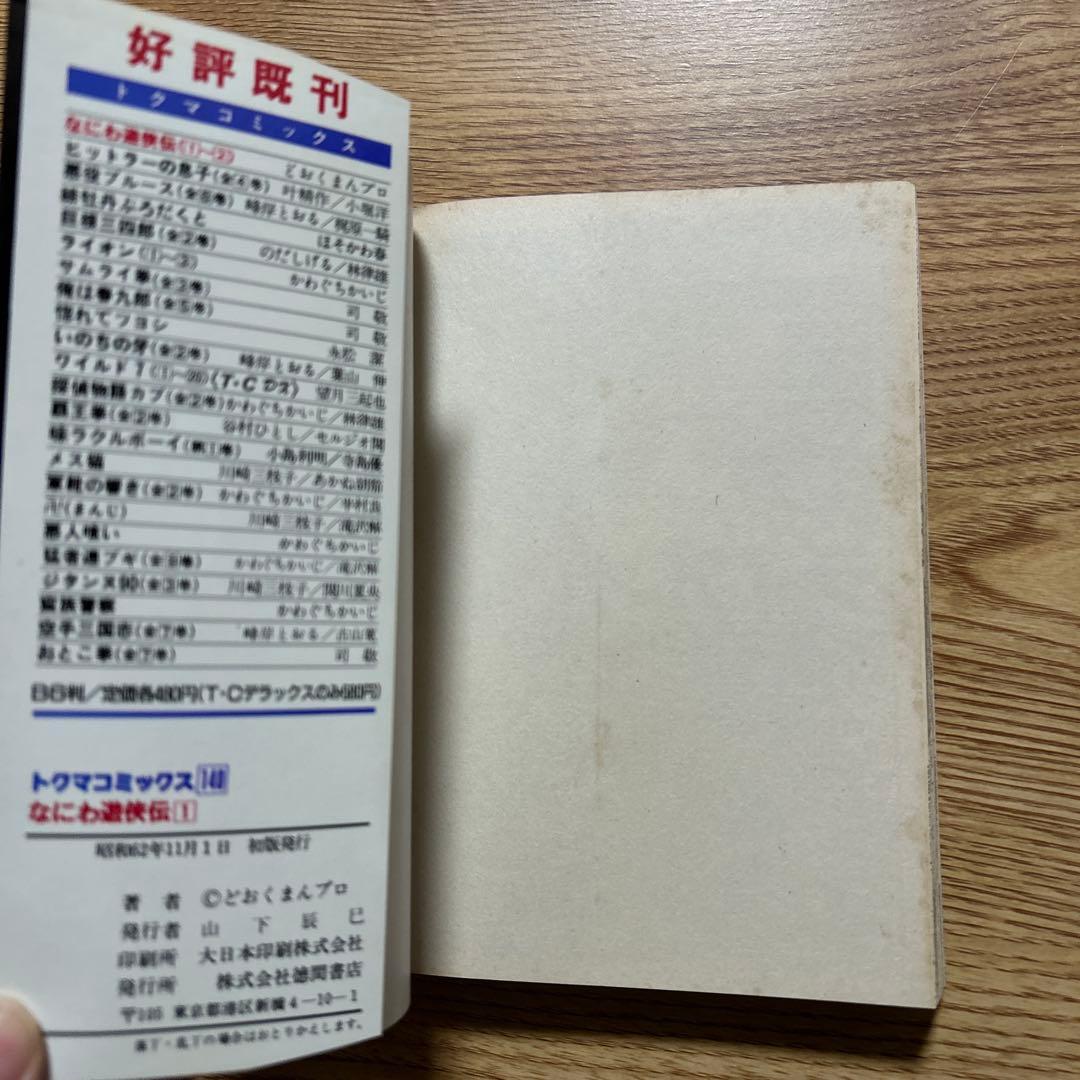 好評既刊
トクマコミックス
なにわ遊侠伝(1)〜(2) どおくまんプロ
ヒットラーの息子(全④巻) 叶精作/小堀洋
悪役ブルース(全⑥巻) 峰岸とおる/梶原一騎
緋牡丹ぷろだくと ほそかわ春
巨球三四郎(全②巻) のだしげる/林律雄
ライオン(1)〜(3) かわぐちかいじ
サムライ拳(全③巻) 司敬
俺は春九郎(全⑤巻) 司敬
惚れてツヨシ 永松潔
いのちの芽(全②巻) 峰岸とおる/葉山伸
ワイルド7(1)〜(26)(T・C DX) 望月三起也
探偵物語カブ(全②巻) かわぐちかいじ/林律雄
覇王拳(全②巻) 谷村ひとし/セルジオ関
味ラクルボーイ(第1巻) 小島利明/寺島優
メス猫 川崎三枝子/あかね
軍靴の響き(全②巻) かわぐちかいじ/半村良
卍(まんじ) 川崎三枝子/滝沢解
悪人喰い かわぐちかいじ
猛者連ブギ(全⑧巻) かわぐちかいじ/滝沢解
ジタンヌ90(全③巻) 川崎三枝子/関川夏央
警察 かわぐちかいじ
空手三国志(全⑦巻) 峰岸とおる/古山寛
おとこ拳(全⑦巻) 司敬
B6判/定価各480円(T・Cデラックスのみ580円)
トクマコミックス 148
なにわ遊侠伝 1
昭和62年11月1日 初版発行
著者 ©どおくまんプロ
発行者 山下辰巳
印刷所 大日本印刷株式会社
発行所 株式会社徳間書店
〒105 東京都港区新橋4―10―1
落丁・乱丁の場合はおとりかえします。